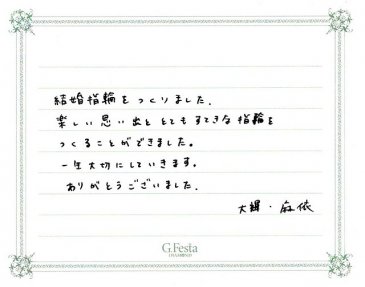 結婚指輪をつくりました.
楽しい思い出と とても すてきな指輪を
つくることができました。
一生大切にしていきます。
ありがとうございました.
大輝・麻依
G.Festa
DIAMOND